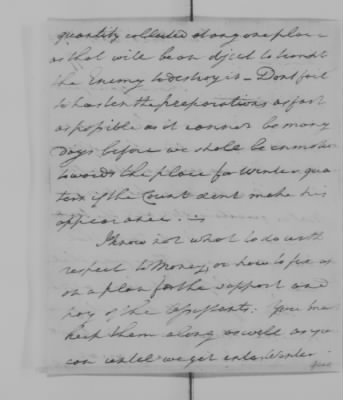 quantity collected at any one place
as that will be an object to tempt
the Enemy to destroy it — Dont fail
to hasten the preparations as fast
as possible as it cannot be many
Days before we shall be on mo
towards the place for Winter qua
ters if the Count dont make his
appearance. —
I know not what to do with
respect to Money, or how to fix
on a plan for the support and
pay of the Assistants: You
keep them along as well as you
can untill we get into Winter